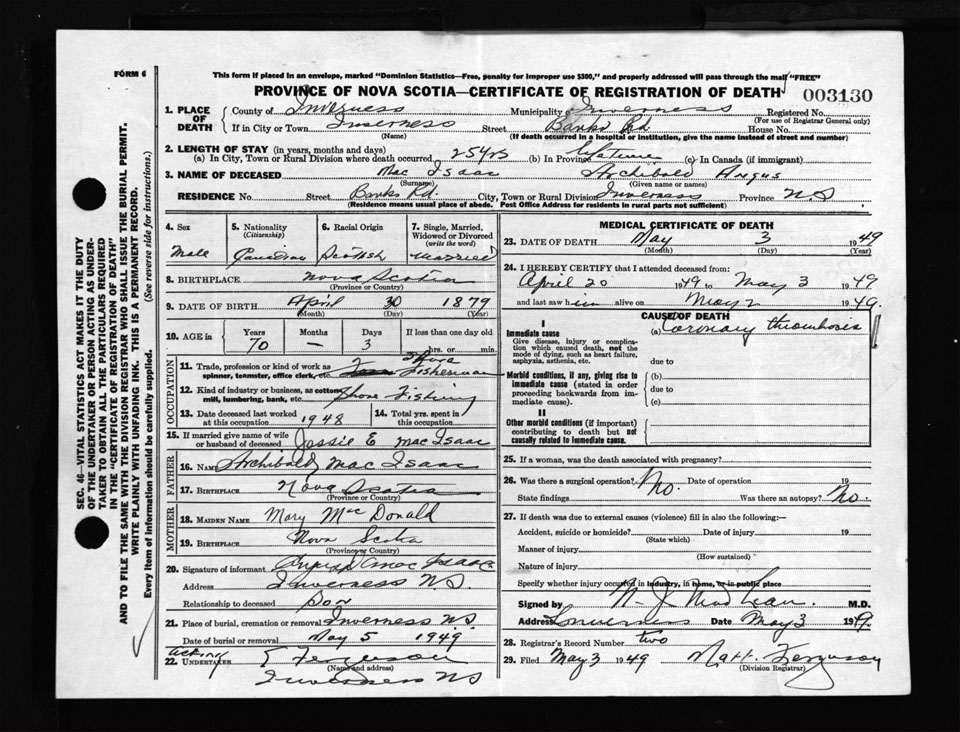 FORM 6
This form if placed in an envelope, marked "Dominion Statistics—Free, penalty for improper use $300," and properly addressed will pass through the mail "FREE"
PROVINCE OF NOVA SCOTIA—CERTIFICATE OF REGISTRATION OF DEATH
003130
1. PLACE OF DEATH County of Inverness Municipality of Inverness Registered No.
(For use of Registrar General only)
If in City or Town Inverness Street Banks Rd. House No.
(Name) (If death occurred in a hospital or institution, give the name instead of street and number)
2. LENGTH OF STAY (in years, months and days)
(a) In City, Town or Rural Division where death occurred 25 yrs (b) In Province Lifetime (c) In Canada (if immigrant)
3. NAME OF DECEASED Mac Isaac Archibald Angus
(Surname) (Given name or names)
RESIDENCE No. Street Banks Rd. City, Town or Rural Division Inverness Province N.S
(Residence means usual place of abode. Post Office Address for residents in rural parts not sufficient)
4. Sex 5. Nationality 6. Racial Origin 7. Single, Married, Widowed or Divorced
(Citizenship) (write the word)
Male Canadian Scottish Married
8. BIRTHPLACE Nova Scotia
(Province or Country)
9. DATE OF BIRTH April 30 1879
(Month) (Day) (Year)
10. AGE in Years Months Days If less than one day old
70 — 3 hrs. or min.
OCCUPATION
11. Trade, profession or kind of work as spinner, teamster, office clerk, etc. Shore Fisherman
12. Kind of industry or business, as cotton mill, lumbering, bank, etc. Shore Fishing
13. Date deceased last worked at this occupation 1948 14. Total yrs. spent in this occupation
15. If married give name of wife or husband of deceased Jessie E MacIsaac
FATHER
16. NAME Archibald MacIsaac
17. BIRTHPLACE Nova Scotia
(Province or Country)
MOTHER
18. MAIDEN NAME Mary MacDonald
19. BIRTHPLACE Nova Scotia
(Province or Country)
20. Signature of informant MacIsaac
Address Inverness N.S.
Relationship to deceased Son
21. Place of burial, cremation or removal Inverness N.S.
Date of burial or removal May 5 1949
Acting
22. UNDERTAKER Ferguson
(Name and address)
Inverness N.S
MEDICAL CERTIFICATE OF DEATH
23. DATE OF DEATH May 3 1949
(Month) (Day) (Year)
24. I HEREBY CERTIFY that I attended deceased from:
April 20 1949 to May 3 1949
and last saw him alive on May 2 1949.
CAUSE OF DEATH
I
Immediate cause (a) Coronary thrombosis
Give disease, injury or complication which caused death, not the mode of dying, such as heart failure, asphyxia, asthenia, etc.
due to
Morbid conditions, if any, giving rise to immediate cause (stated in order proceeding backwards from immediate cause).
(b)
due to
(c)
II
Other morbid conditions (if important) contributing to death but not causally related to immediate cause.
25. If a woman, was the death associated with pregnancy?
26. Was there a surgical operation? No. Date of operation 19
State findings Was there an autopsy? No.
27. If death was due to external causes (violence) fill in also the following:—
Accident, suicide or homicide? Date of injury 19
(State which)
Manner of injury
(How sustained)
Nature of injury
Specify whether injury occurred in industry, in home, or in public place
Signed by M.D.
Address Inverness Date May 3 1949.
28. Registrar's Record Number two
29. Filed May 3 1949 Ferguson
(Division Registrar)
SEC. 46—VITAL STATISTICS ACT MAKES IT THE DUTY
OF THE UNDERTAKER OR PERSON ACTING AS UNDER-
TAKER TO OBTAIN ALL THE PARTICULARS REQUIRED
IN THE "CERTIFICATE OF REGISTRATION OF DEATH"
AND TO FILE THE SAME WITH THE DIVISION REGISTRAR WHO SHALL ISSUE THE BURIAL PERMIT.
WRITE PLAINLY WITH UNFADING INK. THIS IS A PERMANENT RECORD.
Every item of information should be carefully supplied. (See reverse side for instructions.)